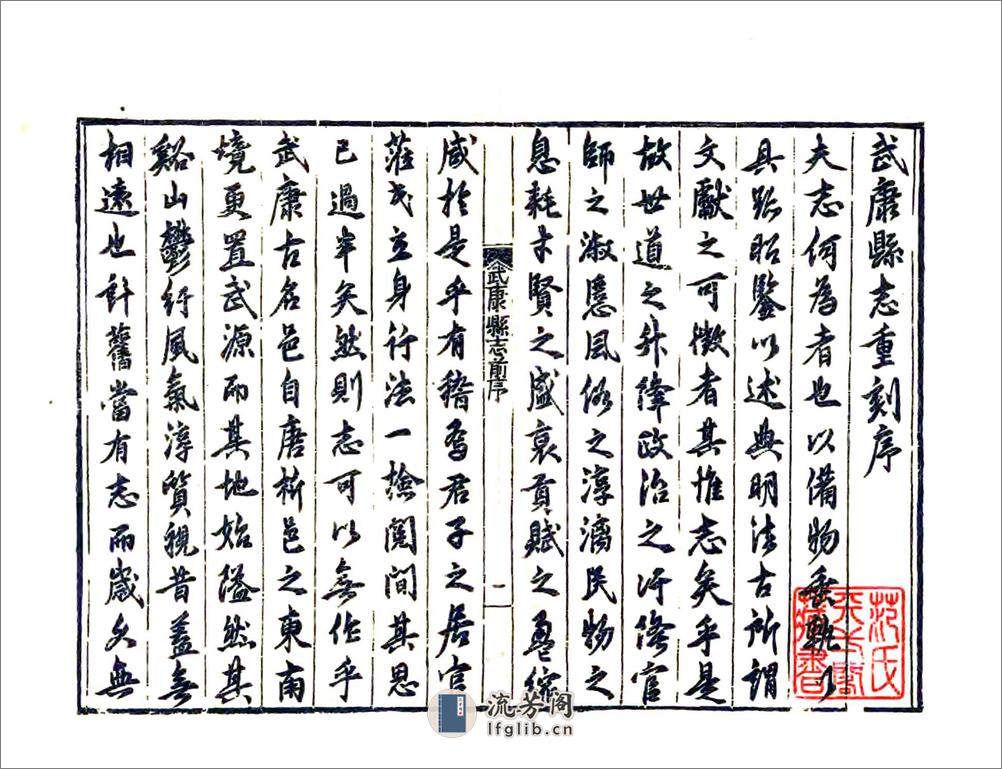 武康縣志重刻序
夫志何為者也以備物垂軌以
具跡昭鑒以述典明法古所謂
文獻之可徵者其惟志矣乎是
故世道之升降政治之汙隆官
師之淑慝風俗之淳漓民物之
息耗才賢之盛衰貢賦之盈縮
咸於是乎有稽焉君子之居官
蒞民立身行法一撿閱間其思
已過半矣然則志可以無作乎
武康古名邑自唐析邑之東南
境更置武源而其地始隘然其
谿山鬱紆風氣淳質視昔蓋無
相遠也計舊當有志而歲久無
武康縣志前序
一
范氏天一閣藏書
流芳阁
lfglib.cn